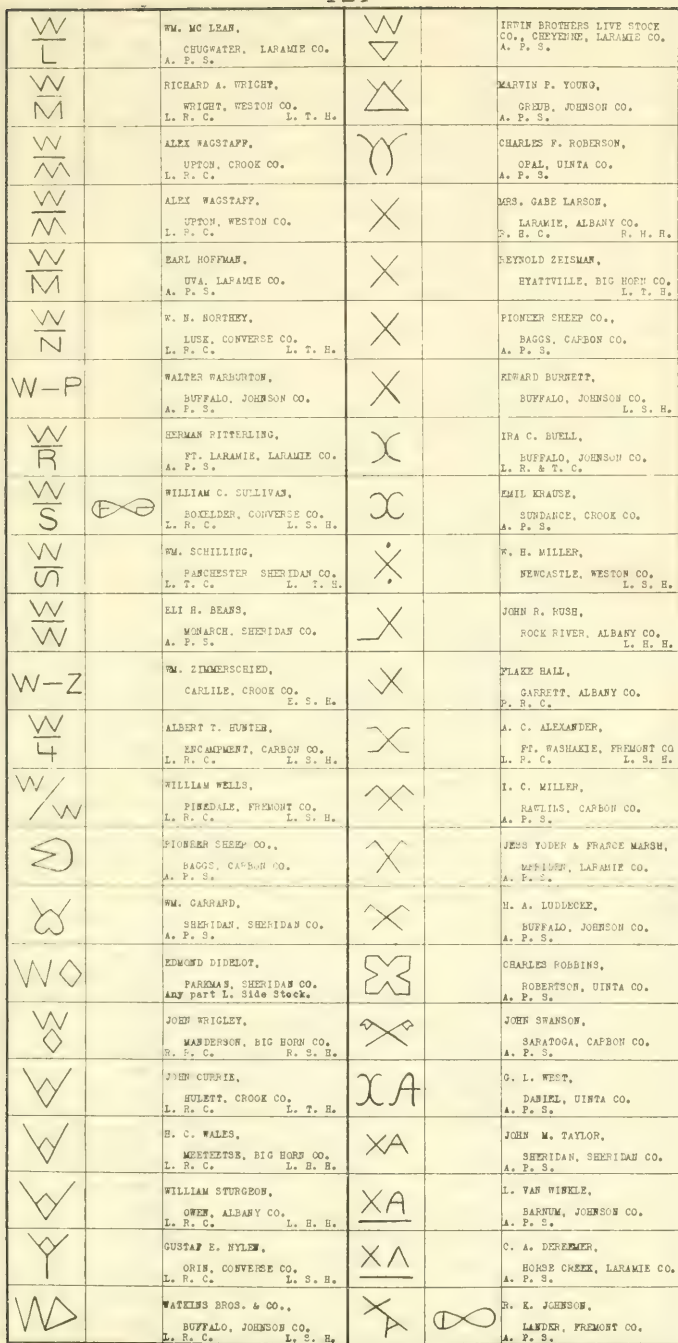 W L
WM. MC LEAN,
CHUGWATER, LARAMIE CO.
A. P. S.
W M
RICHARD A. WRIGHT,
WRIGHT, WESTON CO.
L. R. C. L. T. H.
W M
ALEX WAGSTAFF,
UPTON, CROOK CO.
L. R. C.
W M
ALEX WAGSTAFF,
UPTON, WESTON CO.
L. R. C.
W M
EARL HOFFMAN,
UVA, LARAMIE CO.
A. P. S.
W N
W. N. NORTHEY,
LUSK, CONVERSE CO.
L. R. C. L. T. H.
W-P
WALTER WARBURTON,
BUFFALO, JOHNSON CO.
A. P. S.
W R
HERMAN RITTERLING,
FT. LARAMIE, LARAMIE CO.
A. P. S.
W S
WILLIAM C. SULLIVAN,
BOXELDER, CONVERSE CO.
L. R. C. L. S. H.
W S
WM. SCHILLING,
RANCHESTER SHERIDAN CO.
L. T. C. L. T. H.
W W
ELI H. BEANS,
MONARCH, SHERIDAN CO.
A. P. S.
W-Z
WM. ZIMMERSCHIED,
CARLILE, CROOK CO.
W 4
ALBERT T. HUNTER,
ENCAMPMENT, CARBON CO.
L. R. C. L. S. H.
W/W
WILLIAM WELLS,
PINEDALE, FREMONT CO.
L. R. C. L. S. H.
PIONEER SHEEP CO.,
BAGGS, CARBON CO.
A. P. S.
WM. GARRARD,
SHERIDAN, SHERIDAN CO.
A. P. S.
W
EDMOND DIDELOT,
PARKMAN, SHERIDAN CO.
Any part L. Side Stock.
W
JOHN WRIGLEY,
MANDERSON, BIG HORN CO.
R. R. C. R. S. H.
JOHN CURRIE,
HULETT, CROOK CO.
L. R. C. L. T. H.
H. C. WALES,
MEETEETSE, BIG HORN CO.
L. R. C. L. H. H.
WILLIAM STURGEON,
OWEN, ALBANY CO.
L. R. C. L. H. H.
GUSTAF E. NYLEN,
ORIN, CONVERSE CO.
L. R. C. L. S. H.
WATKINS BROS. & CO.,
BUFFALO, JOHNSON CO.
L. R. C. L. S. H.
W
IRWIN BROTHERS LIVE STOCK
CO., CHEYENNE, LARAMIE CO.
A. P. S.
MARVIN P. YOUNG,
GREUB, JOHNSON CO.
A. P. S.
CHARLES F. ROBERSON,
OPAL, UINTA CO.
A. P. S.
X
MRS. GABE LARSON,
LARAMIE, ALBANY CO.
R. H. C. R. H. H.
X
REYNOLD ZEISMAN,
HYATTVILLE, BIG HORN CO.
L. T. H.
X
PIONEER SHEEP CO.,
BAGGS, CARBON CO.
A. P. S.
X
EDWARD BURNETT,
BUFFALO, JOHNSON CO.
L. S. H.
X
IRA C. BUELL,
BUFFALO, JOHNSON CO.
L. R. & T. C.
X
EMIL KRAUSE,
SUNDANCE, CROOK CO.
A. P. S.
X
W. H. MILLER,
NEWCASTLE, WESTON CO.
L. S. H.
X
JOHN R. RUSH,
ROCK RIVER, ALBANY CO.
L. H. H.
X
FLAKE HALL,
GARRETT, ALBANY CO.
R. R. C.
X
A. C. ALEXANDER,
FT. WASHAKIE, FREMONT CO
L. R. C. L. S. H.
X
I. C. MILLER,
RAWLINS, CARBON CO.
A. P. S.
X
JESS YODER & FRANCE MARSH,
MERIDEN, LARAMIE CO.
A. P. S.
X
H. A. LUDDECKE,
BUFFALO, JOHNSON CO.
A. P. S.
X
CHARLES ROBBINS,
ROBERTSON, UINTA CO.
A. P. S.
JOHN SWANSON,
SARATOGA, CARBON CO.
A. P. S.
XA
G. L. WEST,
DANIEL, UINTA CO.
A. P. S.
XA
JOHN M. TAYLOR,
SHERIDAN, SHERIDAN CO.
A. P. S.
XA
L. VAN WINKLE,
BARNUM, JOHNSON CO.
A. P. S.
XΛ
C. A. DEREEMER,
HORSE CREEK, LARAMIE CO.
A. P. S.
R. K. JOHNSON,
LANDER, FREMONT CO.
A. P. S.